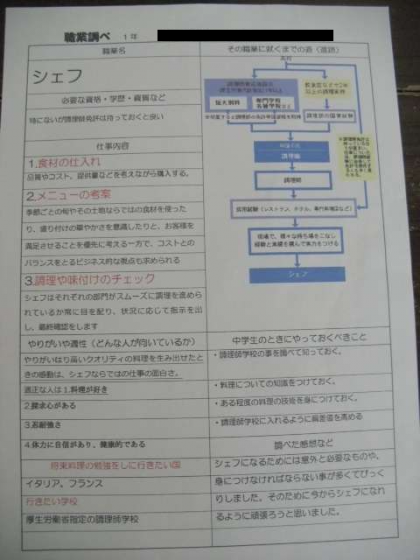 職業調べ 1年
職業名
シェフ
必要な資格・学歴・資質など
特にないが調理師免許は持っておくと良い
仕事内容
1.食材の仕入れ
品質やコスト、提供量などを考えながら購入する。
2.メニューの考案
季節ごとの旬やその土地ならではの食材を使った
り、盛り付けの華やかさを意識したりと、お客様を
満足させることを優先に考える一方で、コストとの
バランスをとるビジネス的な視点も求められる
3.調理や味付けのチェック
シェフはそれぞれの部門がスムーズに調理を進めら
れているか常に目を配り、状況に応じて指示を出
し、最終確認をします
やりがいや適性（どんな人が向いているか）
やりがいはり高いクオリティの料理を生み出せたと
きの感動は、シェフならではの仕事の面白さ。
適正な人は1.料理が好き
2.探求心がある
3.忍耐強さ
4.体力に自信があり、健康的である
将来料理の勉強をしに行きたい国
イタリア、フランス
行きたい学校
厚生労働省指定の調理師学校
その職業に就くまでの道（進路）
高校
短大別科
専門学校
調理師
採用試験（レストラン、ホテル、専門料理店など）
現場で、様々な持ち場をこなし
経験と実績を積んで実力をつける
シェフ
中学生のときにやっておくべきこと
・調理師学校の事を調べて知っておく。
・料理についての知識をつけておく。
・ある程度の料理の技術を身につけておく。
・調理師学校に入れるように偏差値を高める
調べた感想など
シェフになるためには意外と必要なものや、
身につけなければならない事が多くてびっく
りしました。そのために今からシェフになれ
るように頑張ろうと思いました。